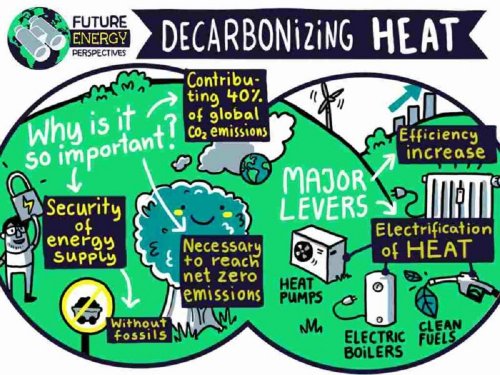 FUTURE
ENERGY
PERSPECTIVES
DECARBONiZiNG HEAT
Why is it
so important?
Contribu-
ting 40%
of global
CO₂ emissions
Security
of
energy
supply
Necessary
to reach
net zero
emissions
Without
fossils
MAJOR
LEVERS
Efficiency
increase
Electrification
of HEAT
HEAT
PUMPS
ELECTRIC
BOiLERS
CLEAN
FUELS